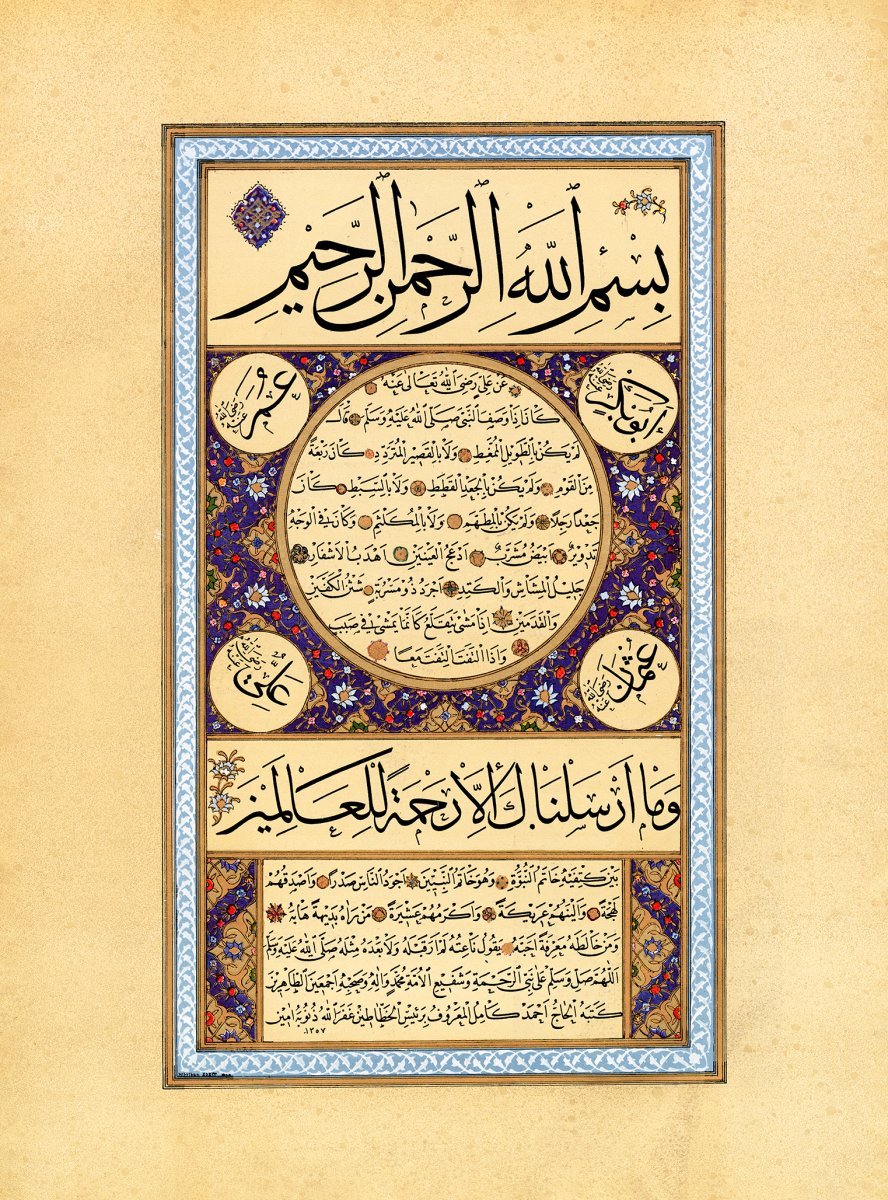 بِسْمِ اللهِ الرَّحْمٰنِ الرَّحِيمِ
أبو بكر رضي الله عنه
عمر رضي الله عنه
عن علي رضى الله تعالى عنه
كان اذا وصف النبى صلى الله عليه وسلم قال
لم يكن بالطويل الممغط ولا بالقصير المتردد كان ربعة
من القوم ولم يكن بالجعد القطط ولا بالسبط كان
جعدا رجلا ولم يكن بالمطهم ولا بالمكلثم وكان في الوجه
تدوير ابيض مشرب ادعج العينين اهدب الاشفار
جليل المشاش والكتد اجرد ذو مسربة شثن الكفين
والقدمين اذا مشى يتقلع كانما يمشى في صبب
واذا التفت التفت معا
عثمان رضي الله عنه
علي رضي الله عنه
وما ارسلناك الا رحمة للعالمين
بين كتفيه خاتم النبوة وهو خاتم النبيين اجود الناس صدرا واصدقهم
لهجة والينهم عريكة واكرمهم عشيرة من راه بديهة هابه
ومن خالطه معرفة احبه يقول ناعته لم ار قبله ولا بعده مثله صلى الله عليه وسلم
اللهم صل وسلم على نبى الرحمة وشفيع الامة محمد واله وصحبه اجمعين الطاهرين
كتبه الحاج احمد كامل المعروف برئيس الخطاطين غفر الله ذنوبه امين
١٣٥٧